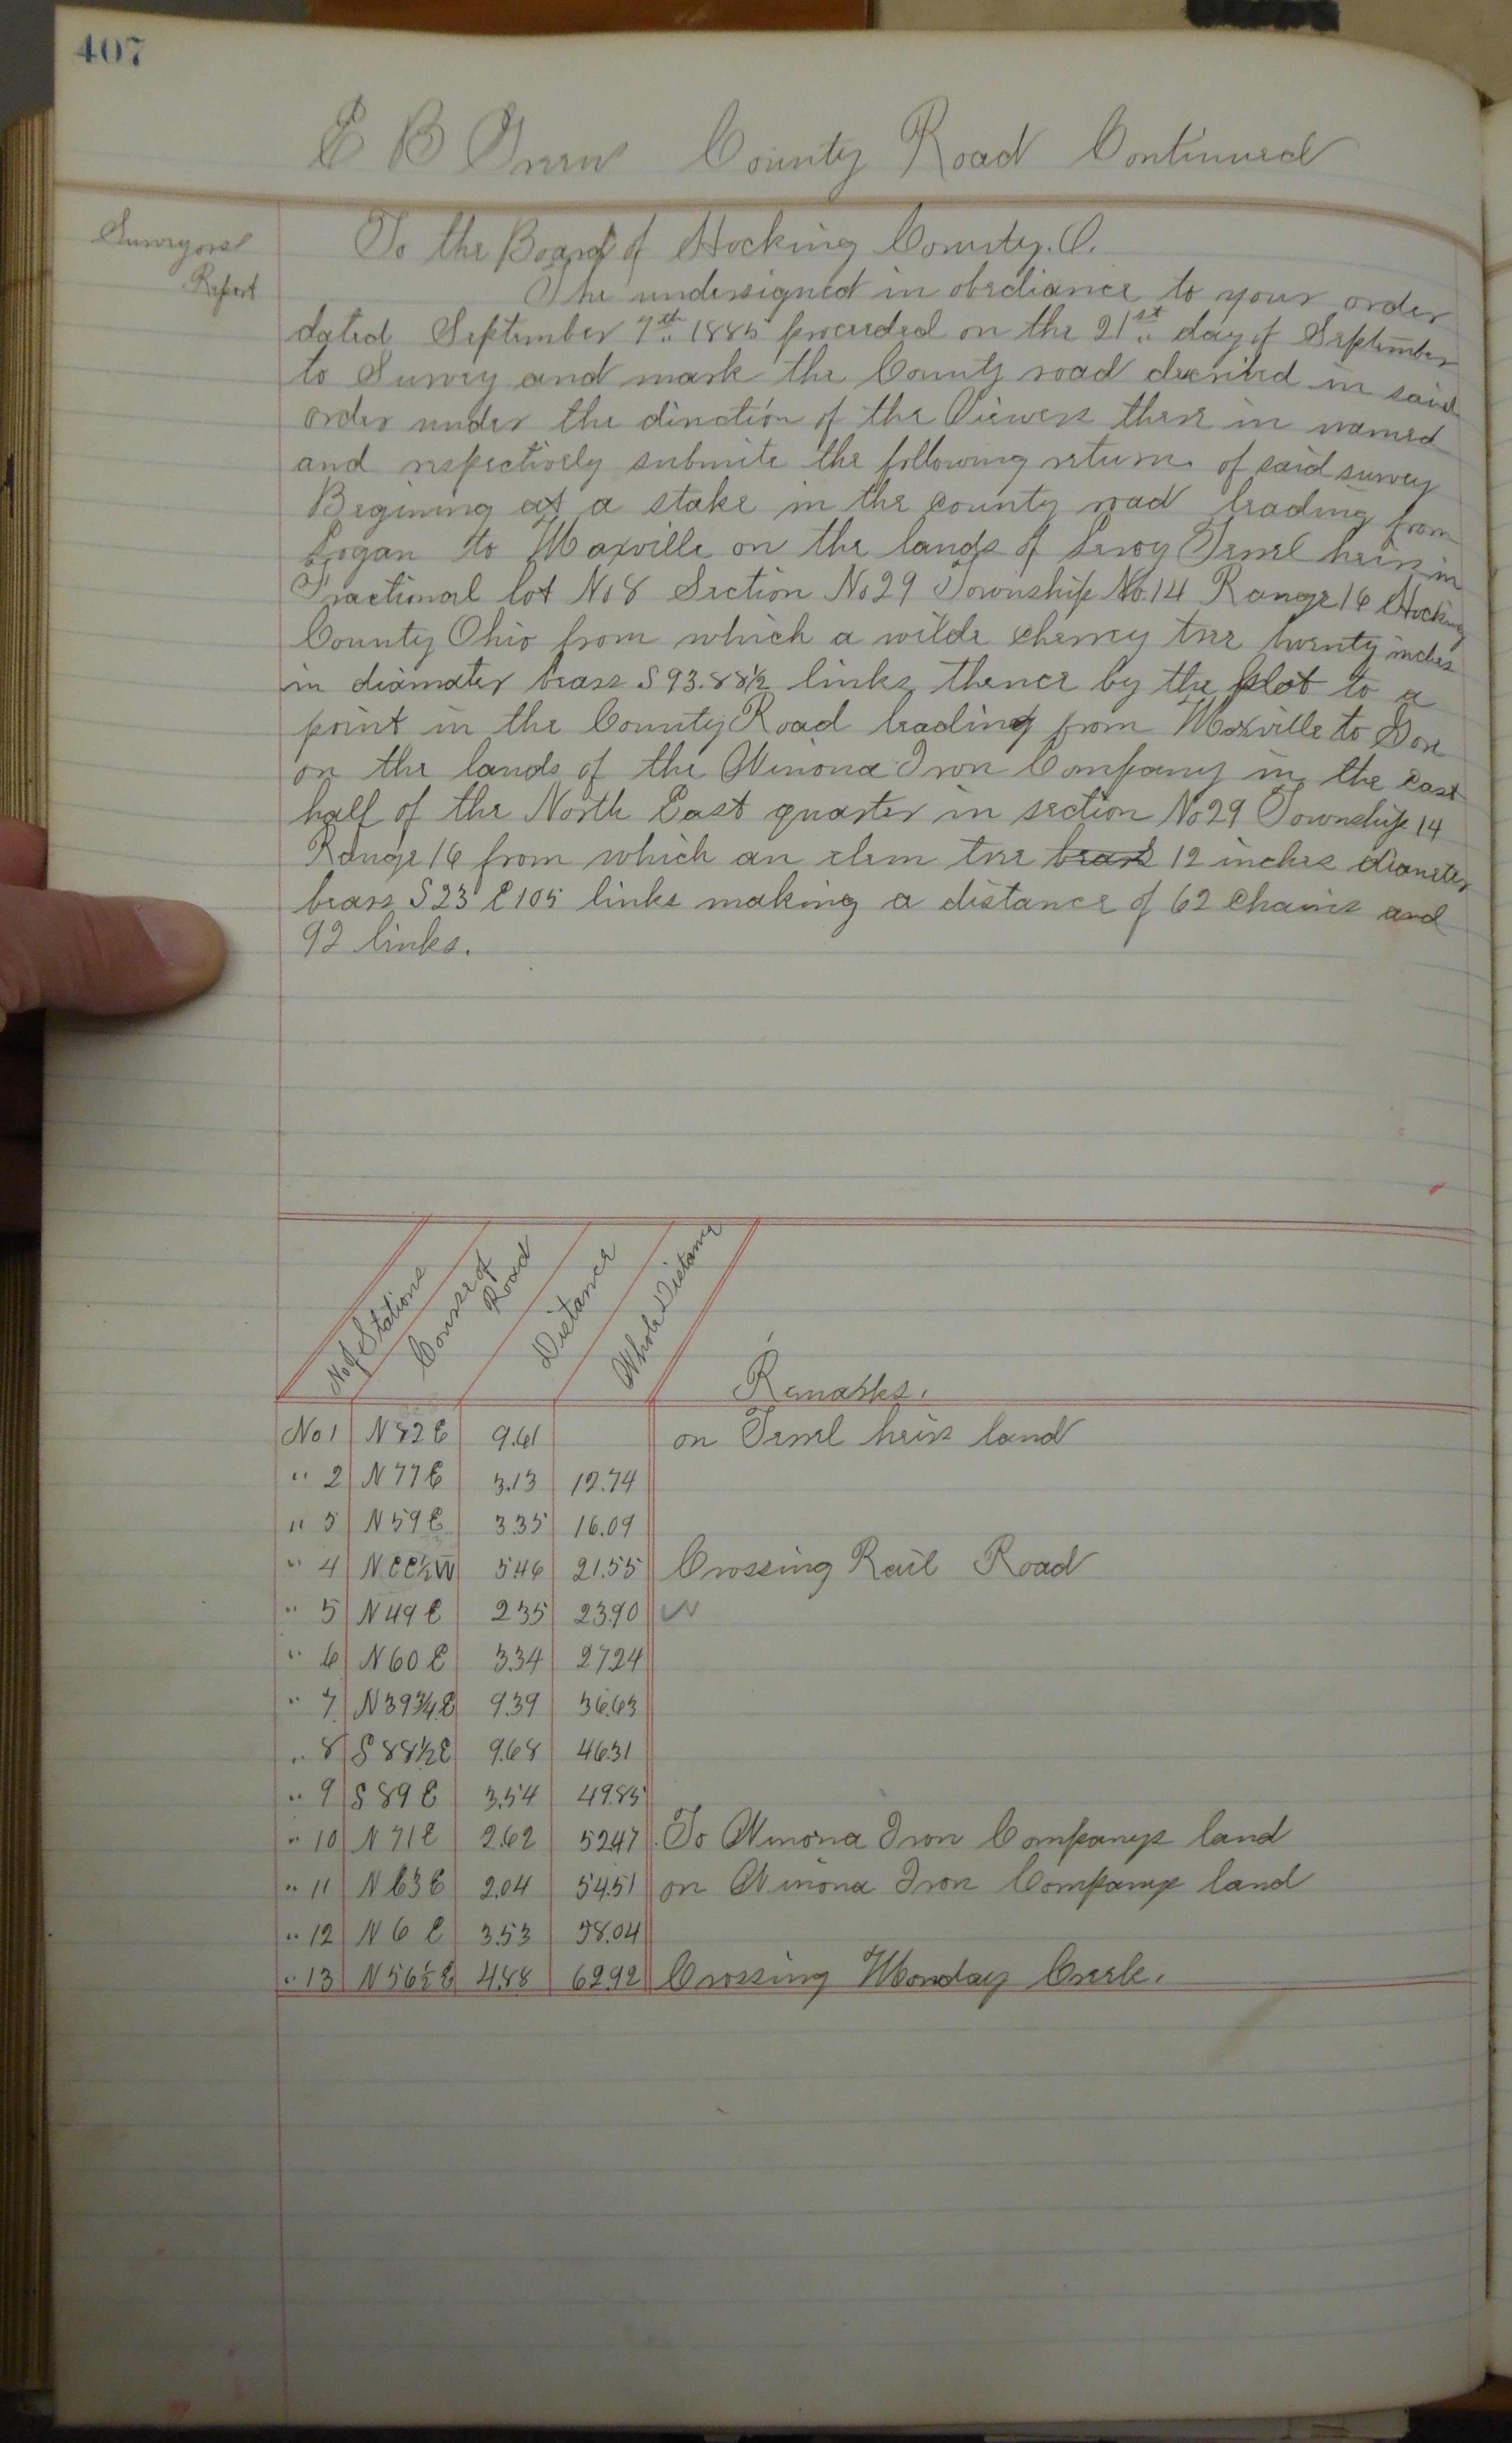 407
E B Green County Road Continued
Surveyors
Report
To the Board of Hocking County. O.
The undersigned in obediance to your order
dated September 7th 1885 proceeded on the 21st day of September
to Survey and mark the County road decribed in said
order under the direction of the Viewers there in named
and respectively submite the following return of said survey
Begining at a stake in the county road leading from
Logan to Maxville on the lands of Leroy Terrel heirs in
Fractional lot No 8 Section No 29 Township No. 14 Range 16 Hocking
County Ohio from which a wilde cherrey tree twenty inches
in diamater bears S 93. 88½ links thence by the plot to a
point in the County Road leading from Maxville to Gore
on the lands of the Winona Iron Company in the east
half of the North East quarter in section No 29 Township 14
Range 16 from which an elem tree bears 12 inches diameter
bears S 23 E 105 links making a distance of 62 chains and
92 links.
No of Stations
Course of Road
Distance
Whole Distance
Remarks.
No 1 N 82 E 9.61 on Terrel heirs land
" 2 N 77 E 3.13 12.74
" 3 N 59 E 3.35 16.09
" 4 5.46 21.55 Crossing Rail Road
" 5 N 49 E 2.35 23.90
" 6 N 60 E 3.34 27.24
" 7 N 39¾ E 9.39 36.63
" 8 S 88½ E 9.68 46.31
" 9 S 89 E 3.54 49.85
" 10 N 71 E 2.62 52.47 To Winona Iron Companys land
" 11 N 63 E 2.04 54.51 on Winona Iron Companys land
" 12 N 6 E 3.53 58.04
" 13 N 56½ E 4.88 62.92 Crossing Monday Creek.